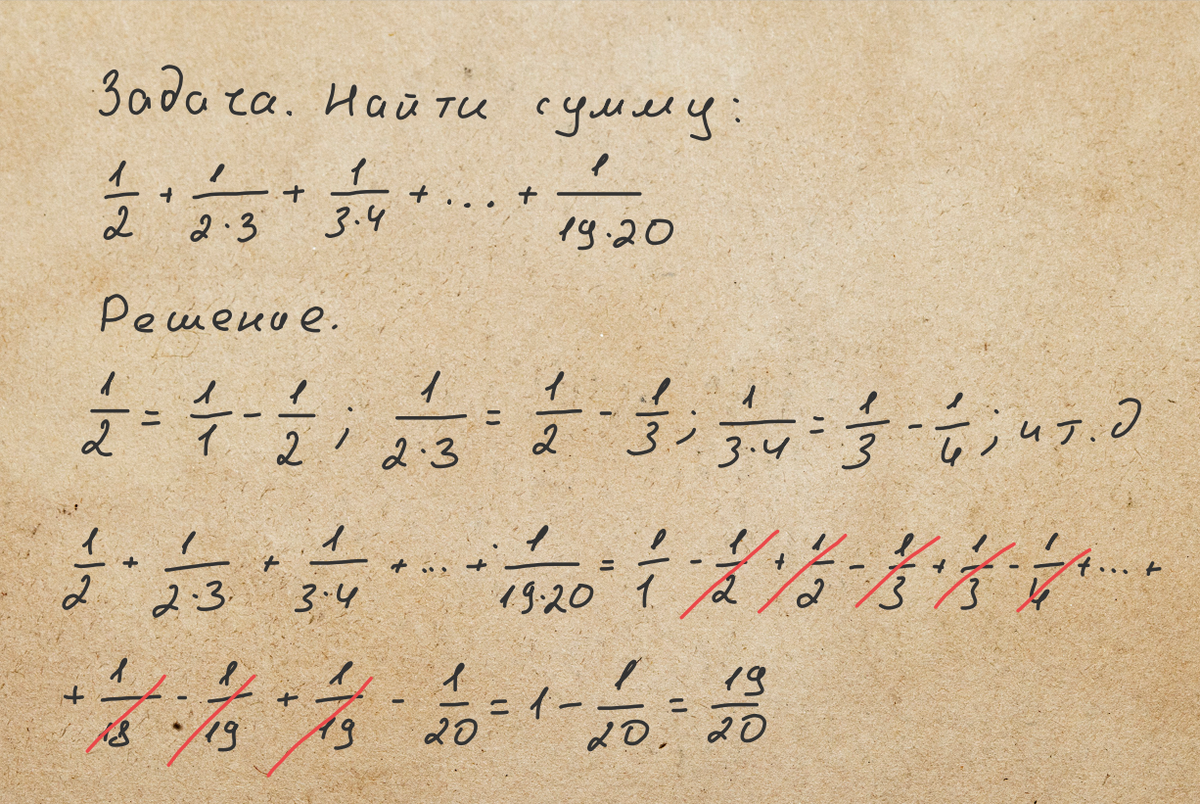 Задача. Найти сумму:
1/2 + 1/(2·3) + 1/(3·4) + ... + 1/(19·20)
Решение.
1/2 = 1/1 - 1/2 ; 1/(2·3) = 1/2 - 1/3 ; 1/(3·4) = 1/3 - 1/4 ; и т. д
1/2 + 1/(2·3) + 1/(3·4) + ... + 1/(19·20) = 1/1 - 1/2 + 1/2 - 1/3 + 1/3 - 1/4 + ... +
+ 1/18 - 1/19 + 1/19 - 1/20 = 1 - 1/20 = 19/20